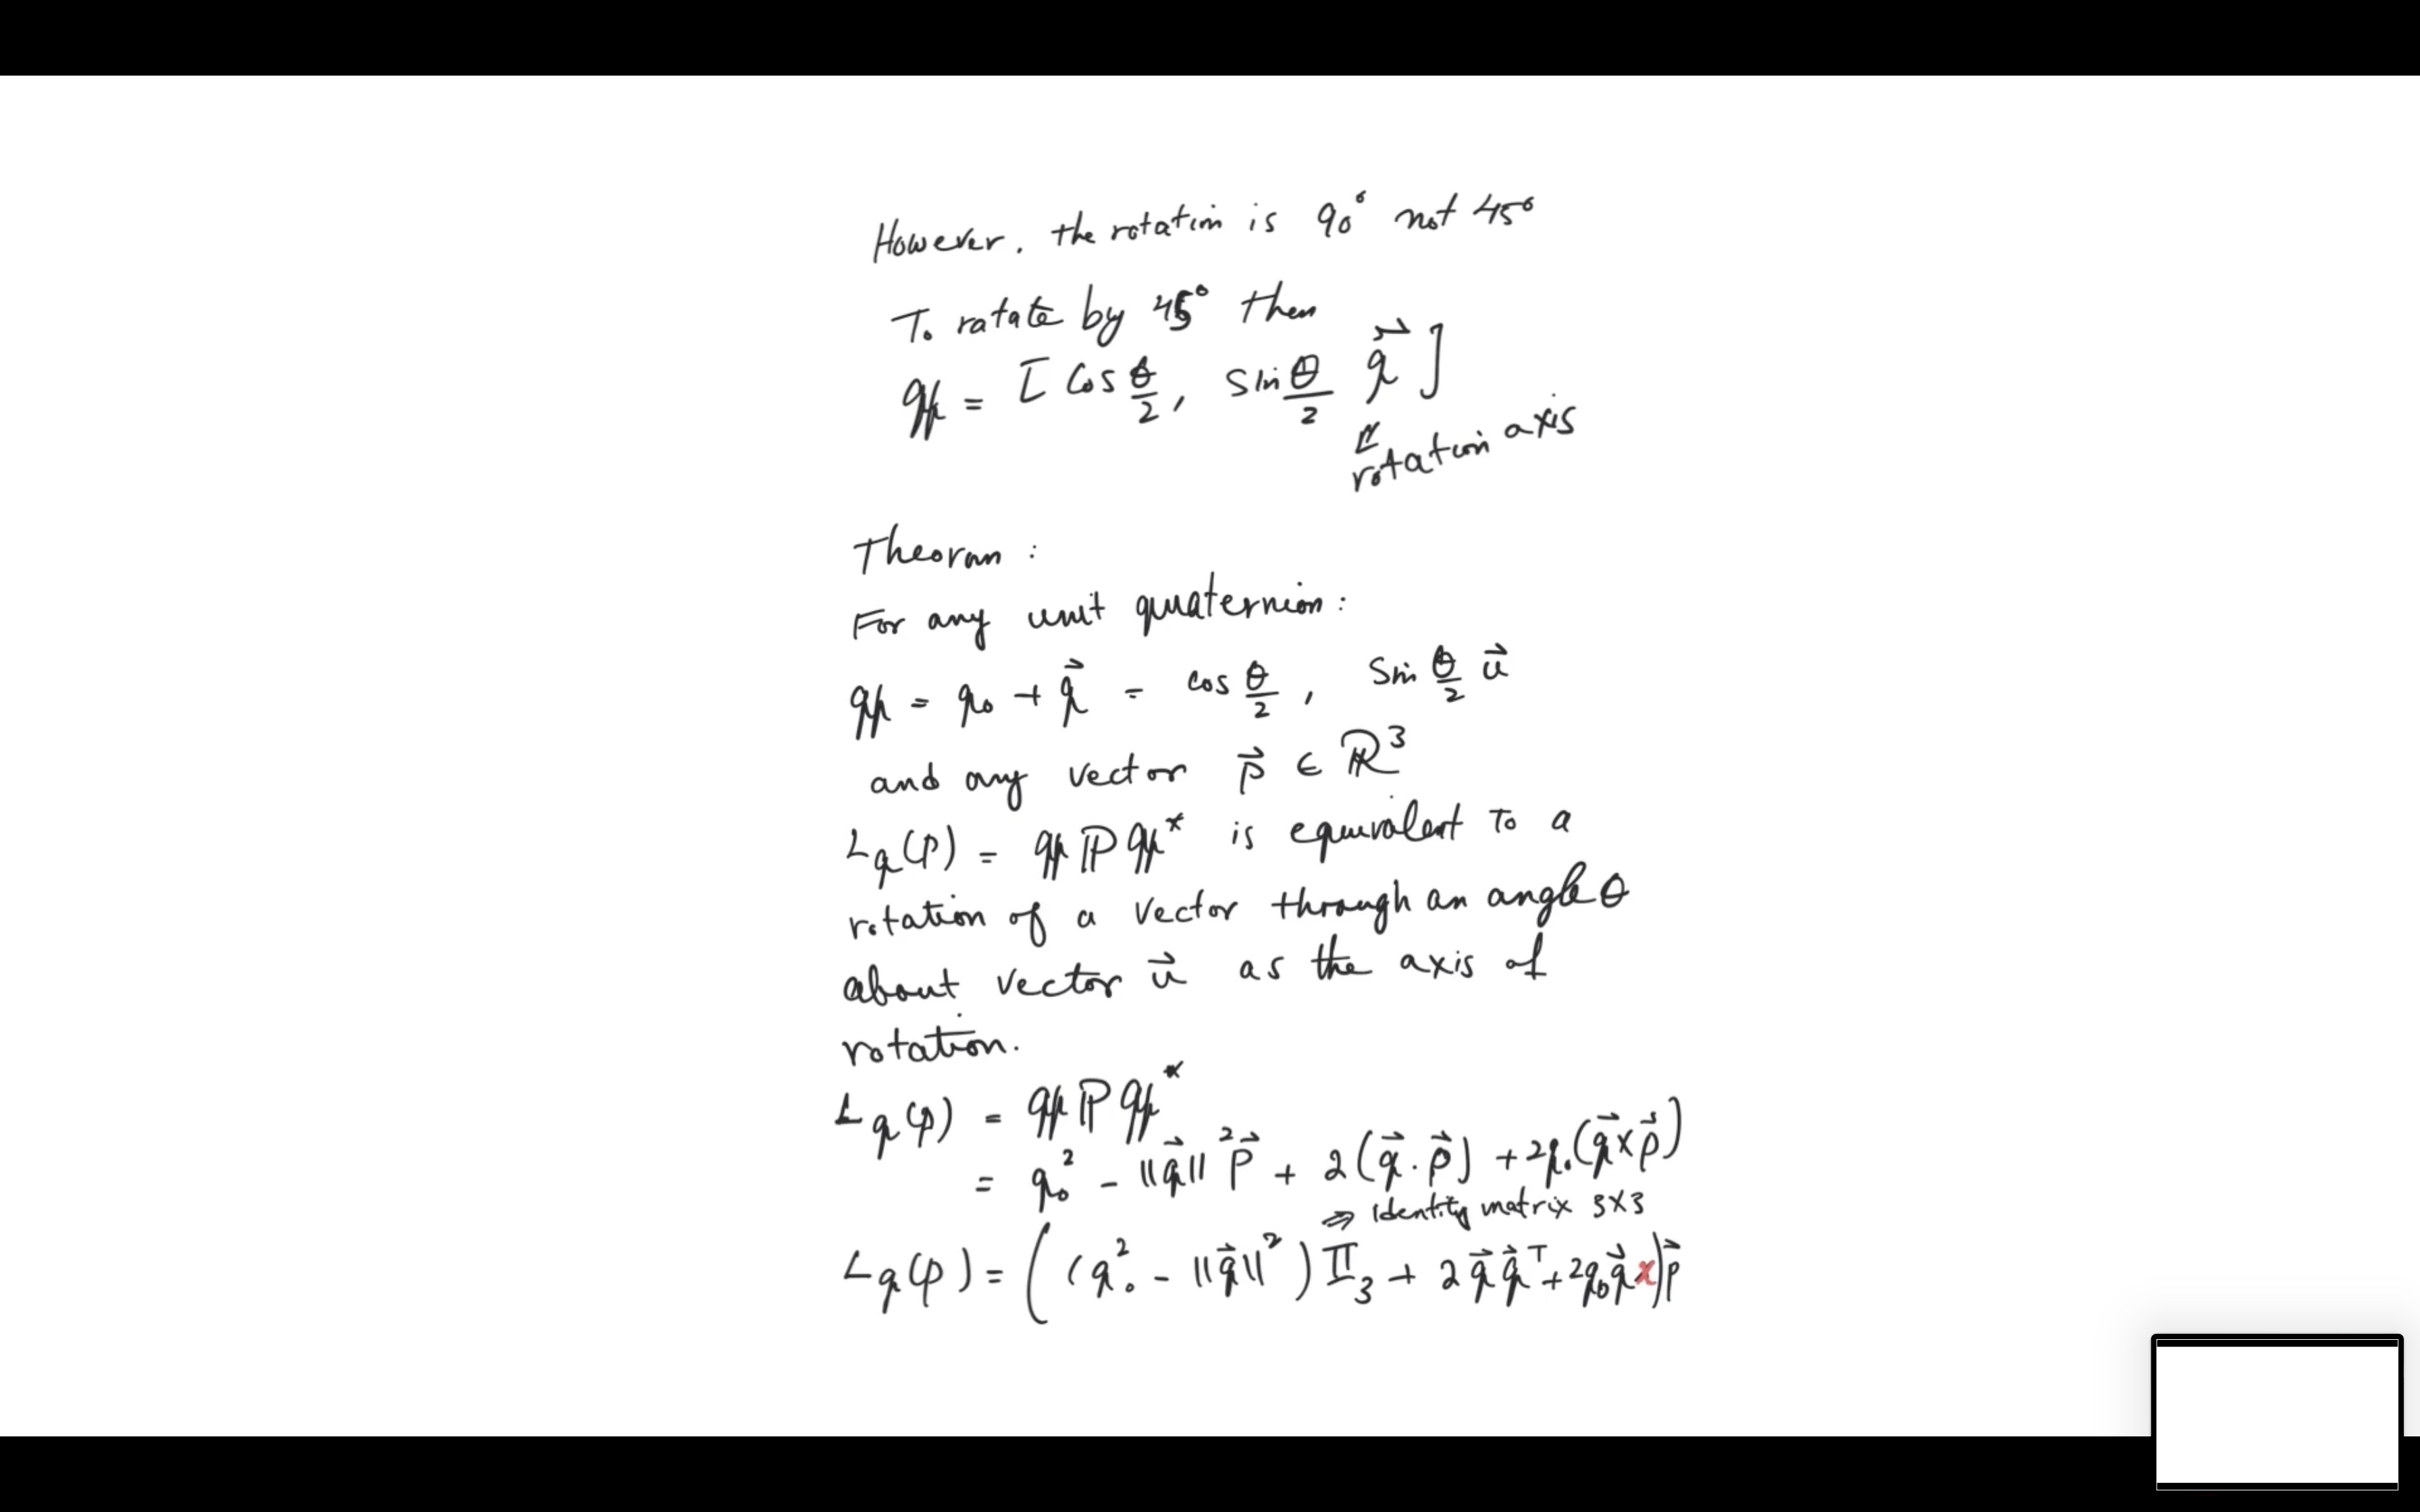 However, the rotation is 90° not 45°
To rotate by 45° then
𝕢 = [ Cos θ/2, Sin θ/2 q⃗ ]
rotation axis
Theoram :
For any unit quaternion :
𝕢 = q₀ + q⃗ = cos θ/2 , Sin θ/2 u⃗
and any vector p⃗ ∈ ℝ³
L_q(p) = 𝕢 ℙ 𝕢* is equivalent to a
rotation of a vector through an angle θ
about vector u⃗ as the axis of
rotation.
L_q(p) = 𝕢 ℙ 𝕢*
= q₀² - ||q⃗||² p⃗ + 2(q⃗ . p⃗) + 2q₀(q⃗ × p⃗)
⇒ identity matrix 3×3
L_q(p) = ( (q₀² - ||q⃗||²) 𝕀₃ + 2 q⃗ q⃗ᵀ + 2q₀ q⃗ × ) p⃗